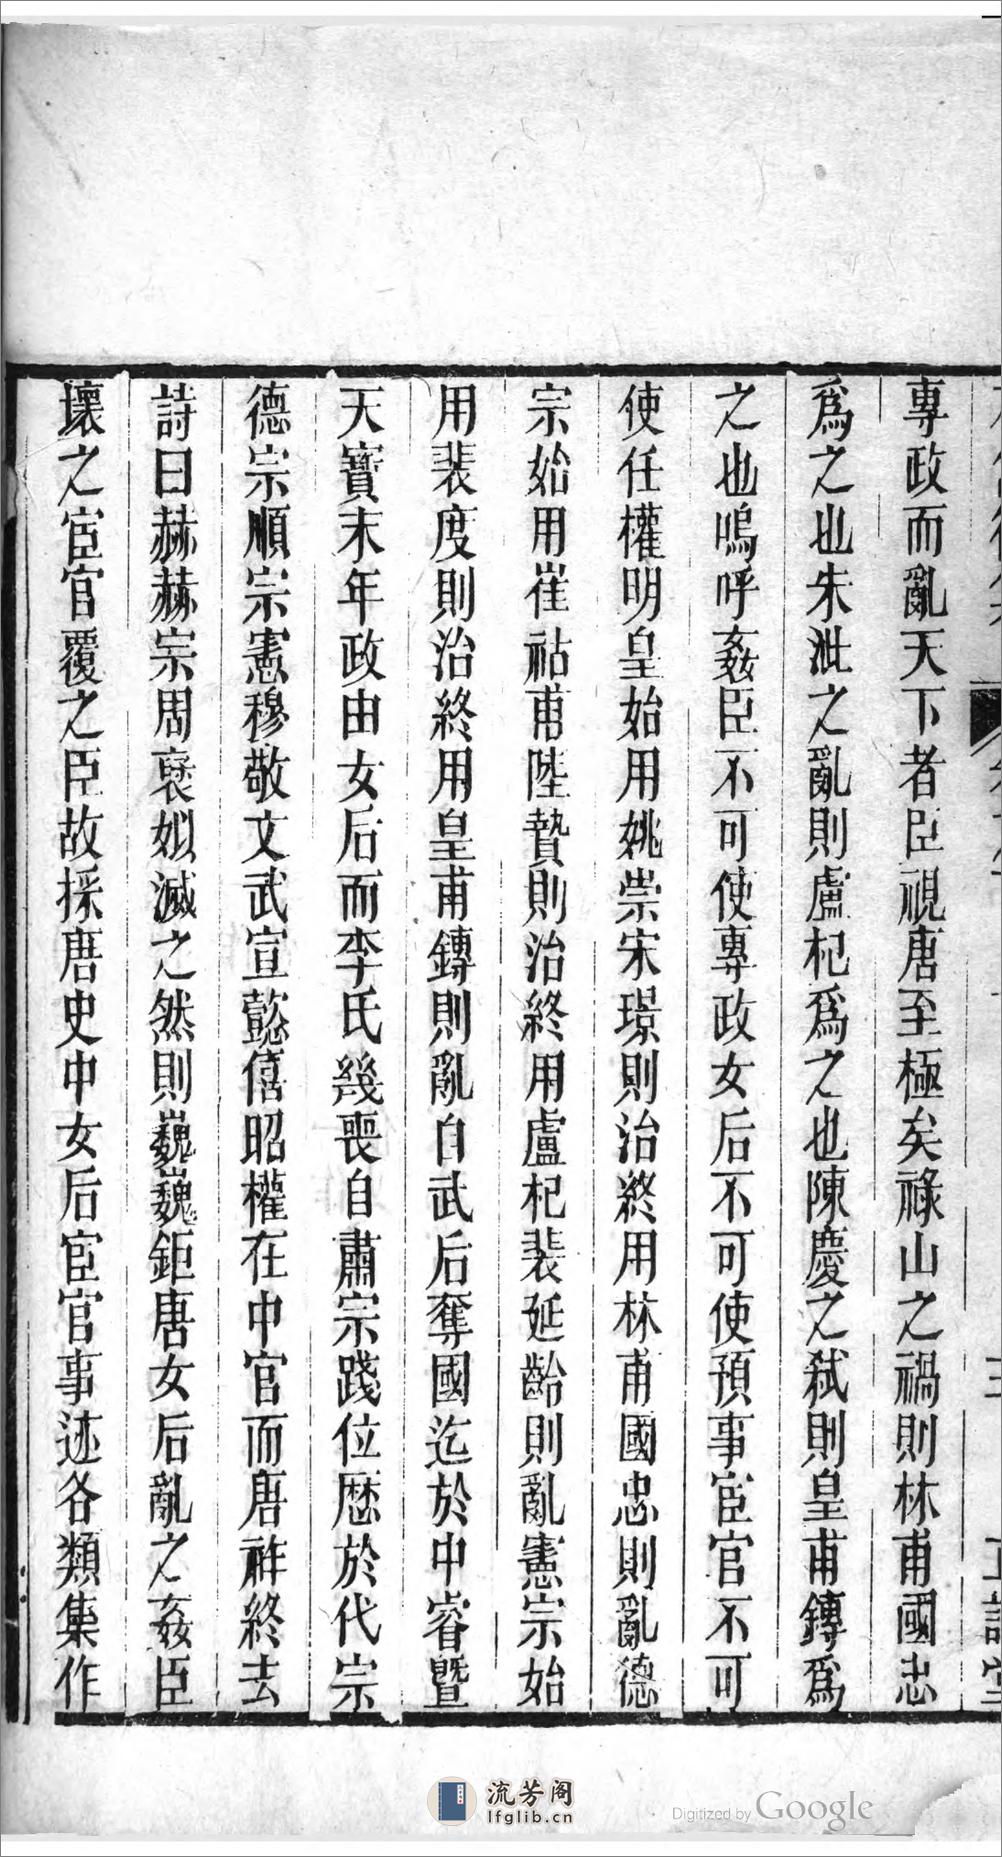 專政而亂天下者臣視唐至極矣祿山之禍則林甫國忠
爲之也朱泚之亂則盧杞爲之也陳慶之弑則皇甫鎛爲
之也嗚呼姦臣不可使專政女后不可使預事宦官不可
使任權明皇始用姚崇宋璟則治終用林甫國忠則亂德
宗始用崔祐甫陸贄則治終用盧杞裴延齡則亂憲宗始
用裴度則治終用皇甫鎛則亂自武后奪國迄於中睿曁
天寳末年政由女后而李氏幾喪自肅宗踐位歴於代宗
德宗順宗憲穆敬文武宣懿僖昭權在中官而唐祚終去
詩曰赫赫宗周褒姒滅之然則巍巍鉅唐女后亂之姦臣
壞之宦官覆之臣故採唐史中女后宦官事迹各類集作
流芳阁
lfglib.cn
Digitized by Google